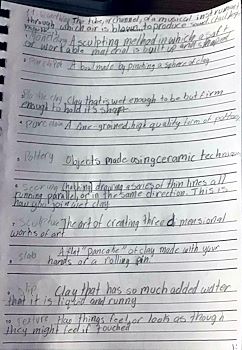 The tube, or channel, of a musical instrument
through which air is blown to produce sound
A sculpting method in which a soft
or workable material is built up and shaped
A bowl made by pinching a sphere of clay
Clay that is wet enough to be but firm
enough to hold its shape
A fine-grained, high quality form of pottery
Pottery Objects made using ceramic techniques
drawing a series of thin lines all
running parallel, or in the same direction. This is
clay
The art of creating three dimensional
works of art
slab A flat "Pancake" of clay made with your
hands or a rolling pin
Clay that has so much added water
that it is liquid and runny
texture Has things feel or look as though
they might feel if touched